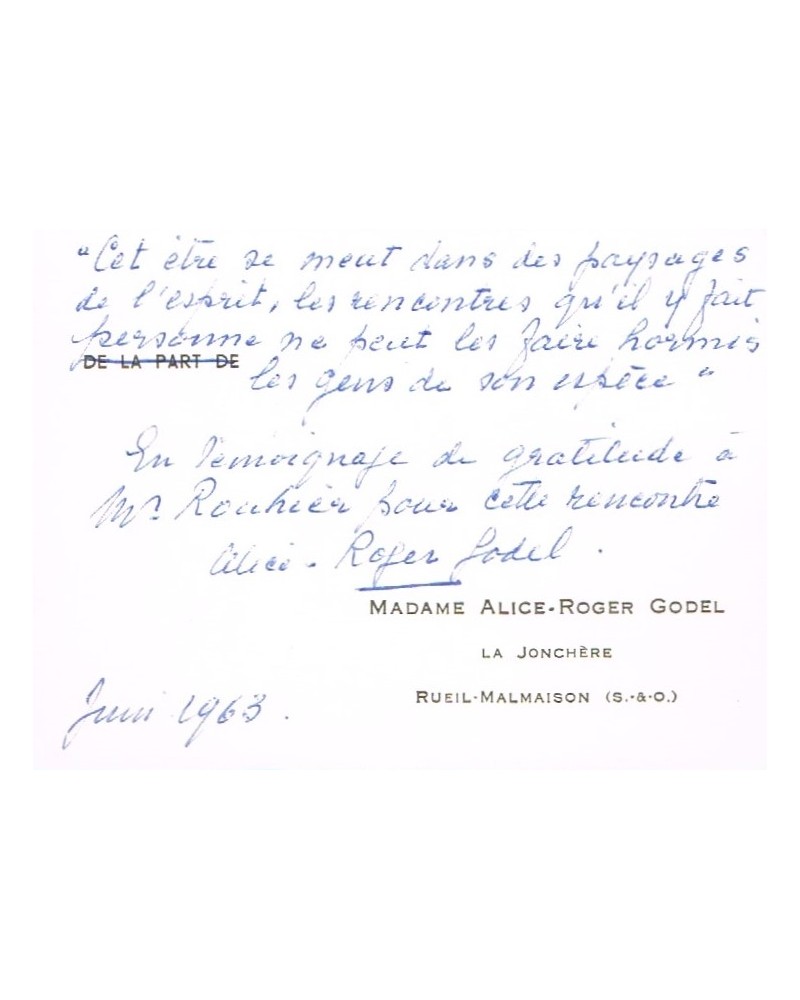 "Cet être se meut dans des paysages
de l'esprit, les rencontres qu'il y fait
personne ne peut les faire hormis
DE LA PART DE
les gens de son espèce"
En témoignage de gratitude à
Mr Rouhier pour cette rencontre
Alice-Roger Godel.
MADAME ALICE-ROGER GODEL
LA JONCHÈRE
RUEIL-MALMAISON (S.-&-O.)
Juin 1963.